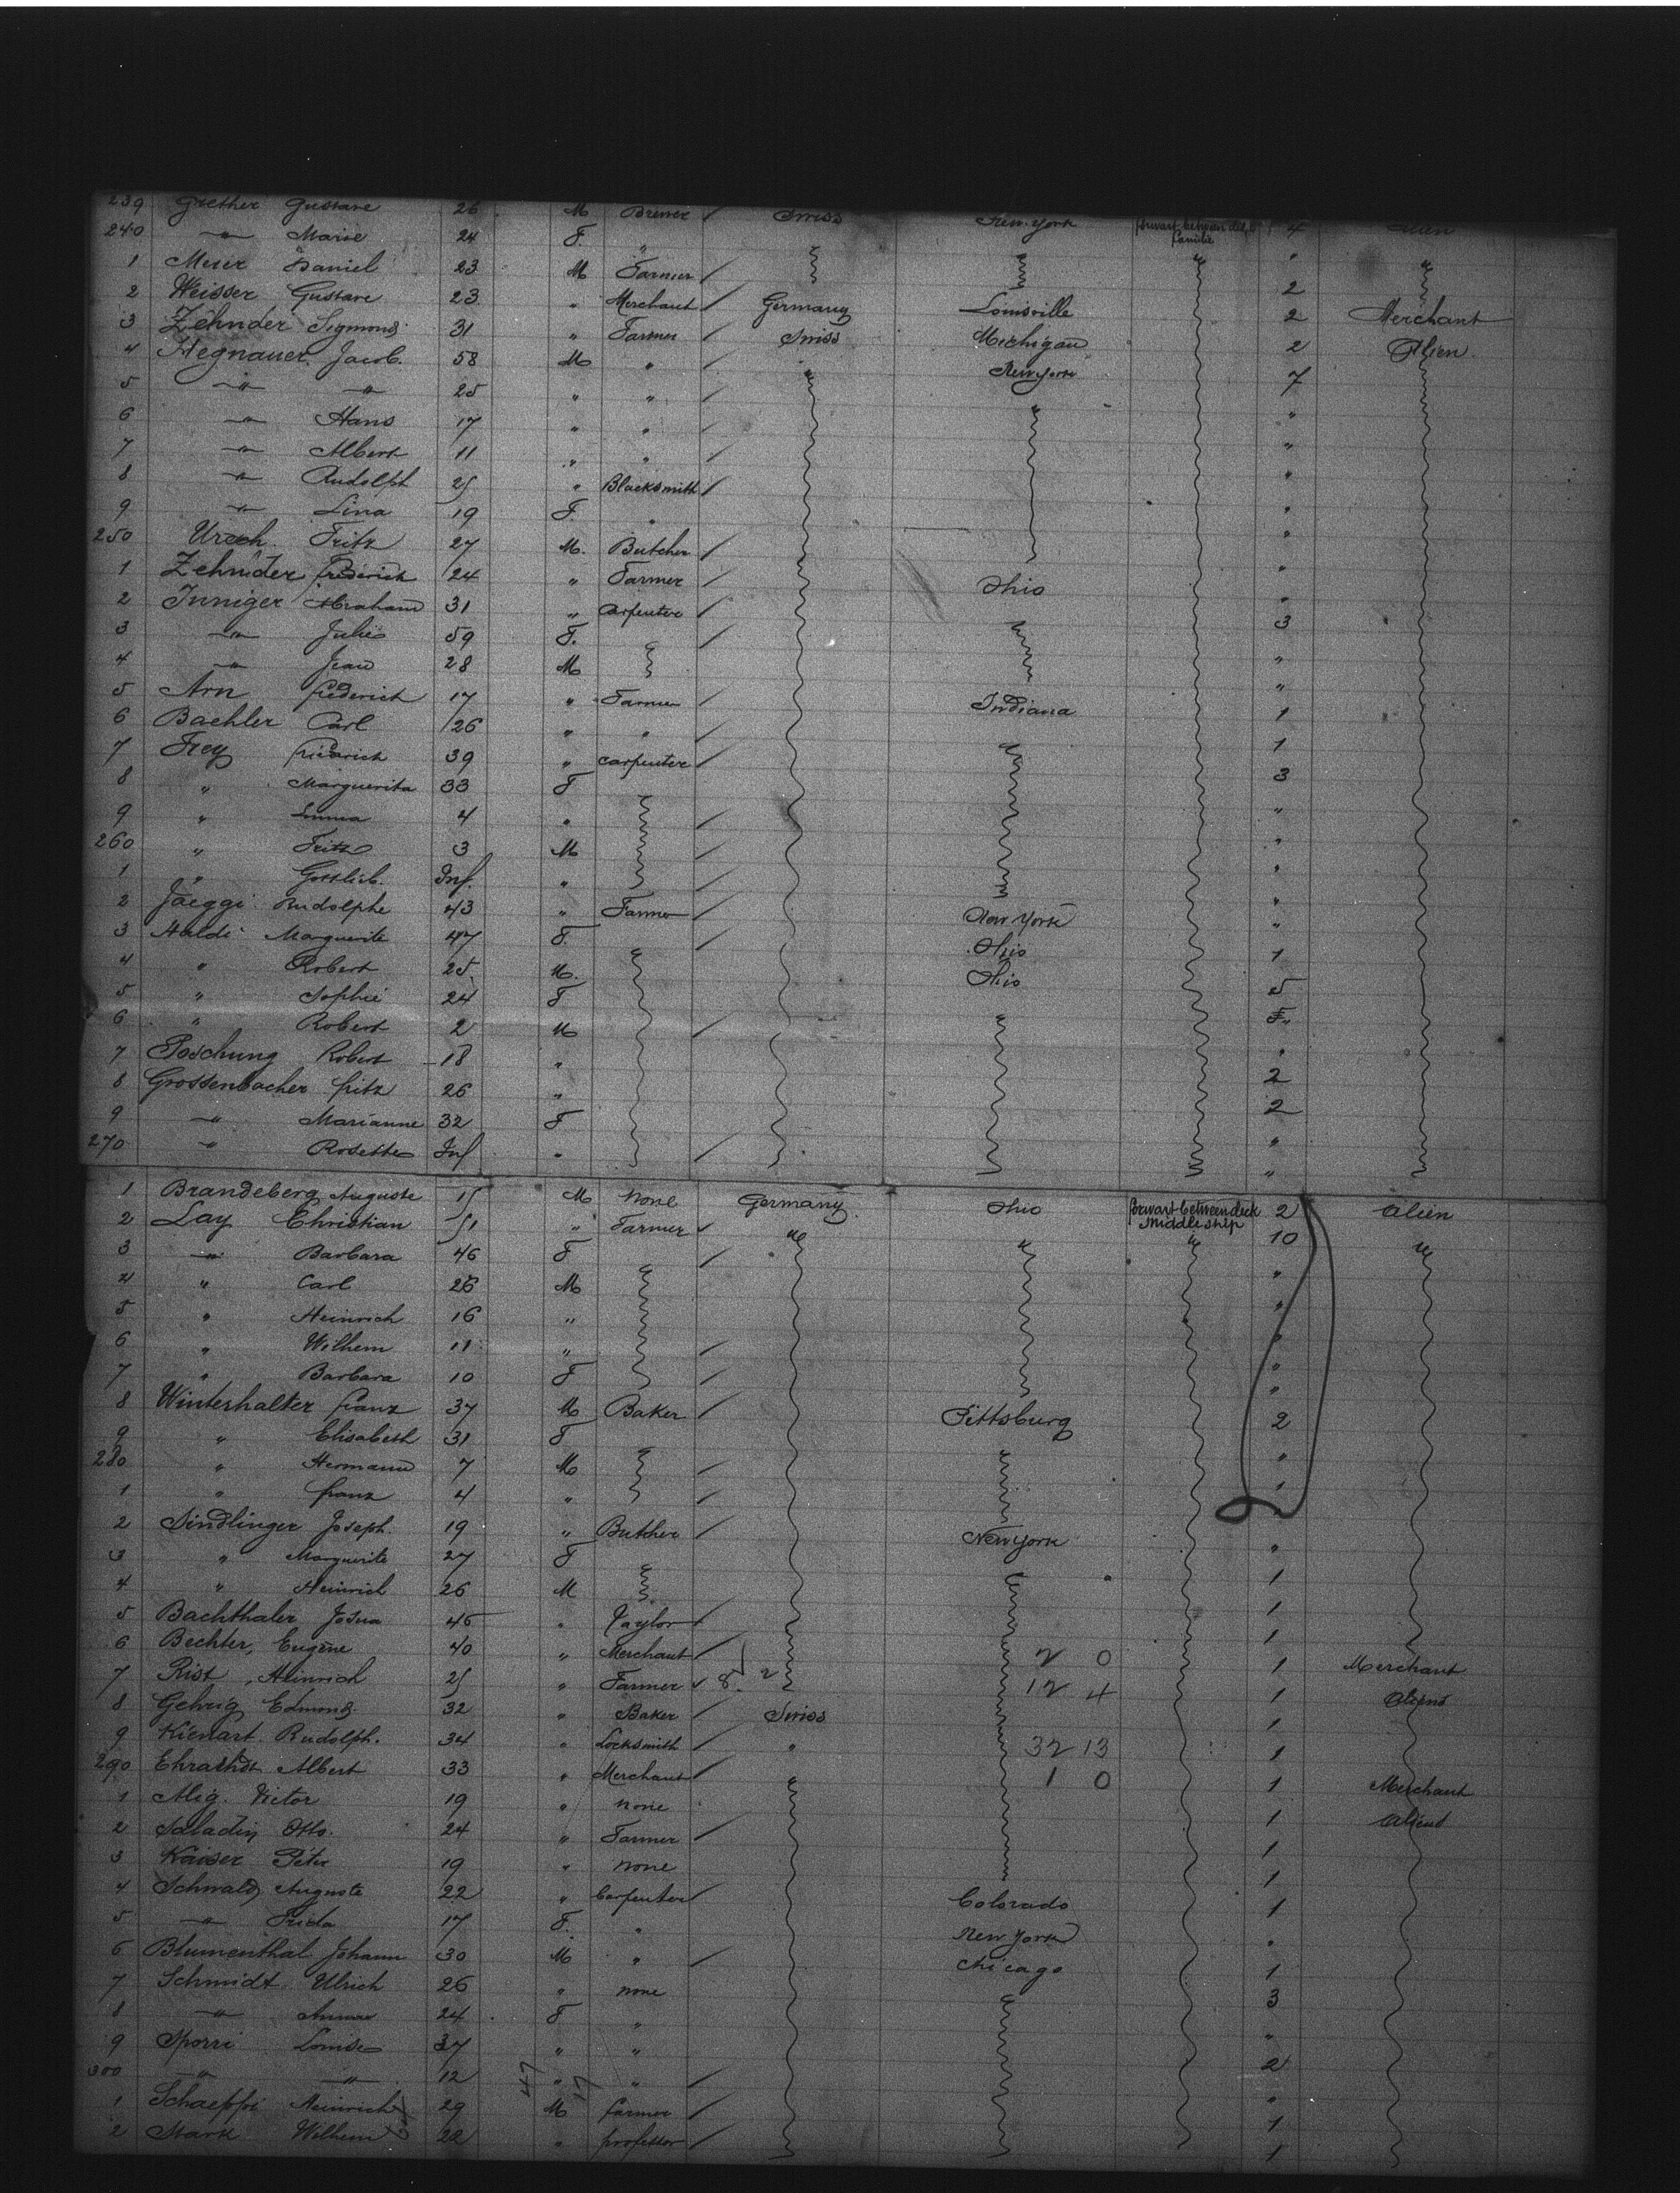 239 Grether Gustave 26 M Brewer / Swiss New-York 4 Alien
240 —"— Marie 24 F. " "
1 Meier Daniel 23 M Farmer / 2
2 Weisser Gustave 23 " Merchant / Germany Louisville 2 Merchant
3 Zehnder Sigmond 31 " Farmer / Swiss Michigan 2 Alien
4 Hegnauer Jacob. 58 M " / " New York 7
5 —"— —"— 25 " " /
6 —"— Hans 17 " " / "
7 —"— Albert 11 " " / "
8 —"— Rudolph 25 " Blacksmith / "
9 —"— Lina 19 F. " "
250 Urech Fritz 27 M. Butcher / "
1 Zehnder Frederich 24 " Farmer / Ohio "
2 Inniger Abraham 31 " Carpenter / 3
3 —"— Julie 59 F. / "
4 —"— Jean 28 M "
5 Arn Frederich 17 " Farmer / Indiana 1
6 Baehler Carl 26 " " / 1
7 Frey Friedrich 39 " Carpenter / 3
8 " Marguerita 33 F "
9 " Emma 4 " / "
260 " Fritz 3 M / "
1 " Gottlieb. Inf. " / "
2 Jaeggi Rudolphe 43 " Farmer / New York "
3 Haldi Marguerite 47 F. / Ohio 1
4 " Robert 25 M. Ohio 5
5 " Sophie 24 F
6 " Robert 2 M / "
7 Poschung Robert 18 " 2
8 Grossenbacher Fritz 26 " 2
9 —"— Marianne 32 F "
270 —"— Rosette Inf " / "
1 Brandeberg Auguste 15 M None Germany Ohio forwart between deck middle ship 2 Alien
2 Lay Christian 51 " Farmer / " " " 10 "
3 —"— Barbara 46 F / "
4 " Carl 26 M "
5 " Heinrich 16 " "
6 " Wilhem 11 " / "
7 " Barbara 10 F / "
8 Winterhalter Franz 37 M Baker / Pittsburg 2
9 " Elisabeth 31 F "
280 " Hermann 7 M /
1 " Franz 4 " /
2 Sindlinger Joseph. 19 " Butcher / New York "
3 " Marguerite 27 F 1
4 " Heinrich 26 M 1
5 Bachthaler Josua 45 " Taylor / 1
6 Bechter, Eugène 40 " Merchant / 2 0 1 Merchant
7 Rist, Heinrich 25 " Farmer / 8 2 12 4 1 Aliens
8 Gehrig Edmond. 32 " Baker / Swiss 1
9 Kienart Rudolph. 34 " Locksmith / " 32 13 1
290 Albert 33 " Merchant / 1 0 1 Merchant
1 Alig. Victor 19 " none Aliens
2 Saladin Otto. 24 " Farmer / 1
3 Kaiser Peter 19 " none 1
4 Schwald Auguste 22 " Carpenter / Colorado 1
5 —"— Frida 17 F. " New York "
6 Blumenthal Johann 30 M " / Chicago 1
7 Schmidt Ulrich 26 " none 3
8 —"— Anna 24 F " "
9 Sporri Louise 37 " " 2
300 —"— —"— 12 47 " 17 " / "
1 Schaeppi Heinrich 29 M farmer / 1
2 Stark Wilhem 22 " professor / 1